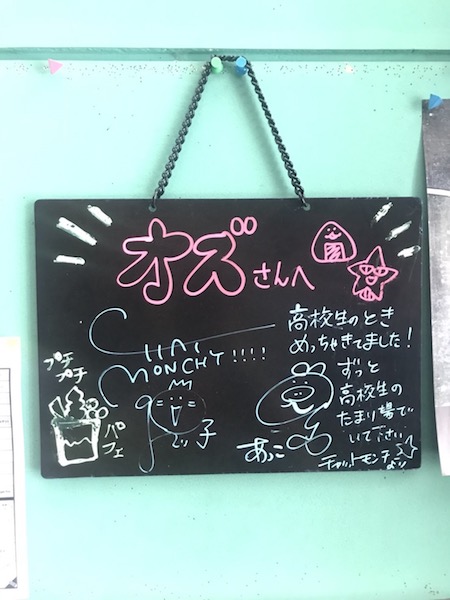 オズさんへ
CHAT
MONCHY!!!!
高校生のとき
めっちゃきてました！
ずっと
高校生の
たまり場で
いて下さい
チャットモンチーより
あっこ
プチ
プチ
パフェ